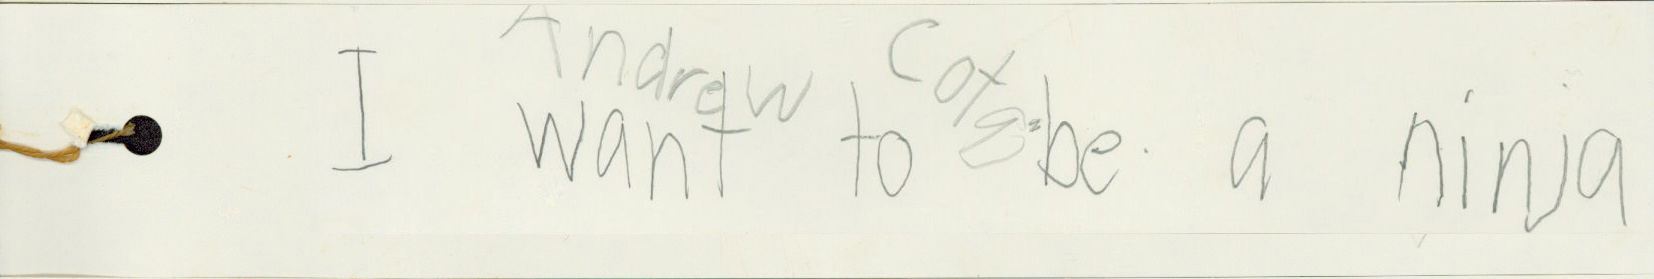 Andrew Cote
I want to be a ninja